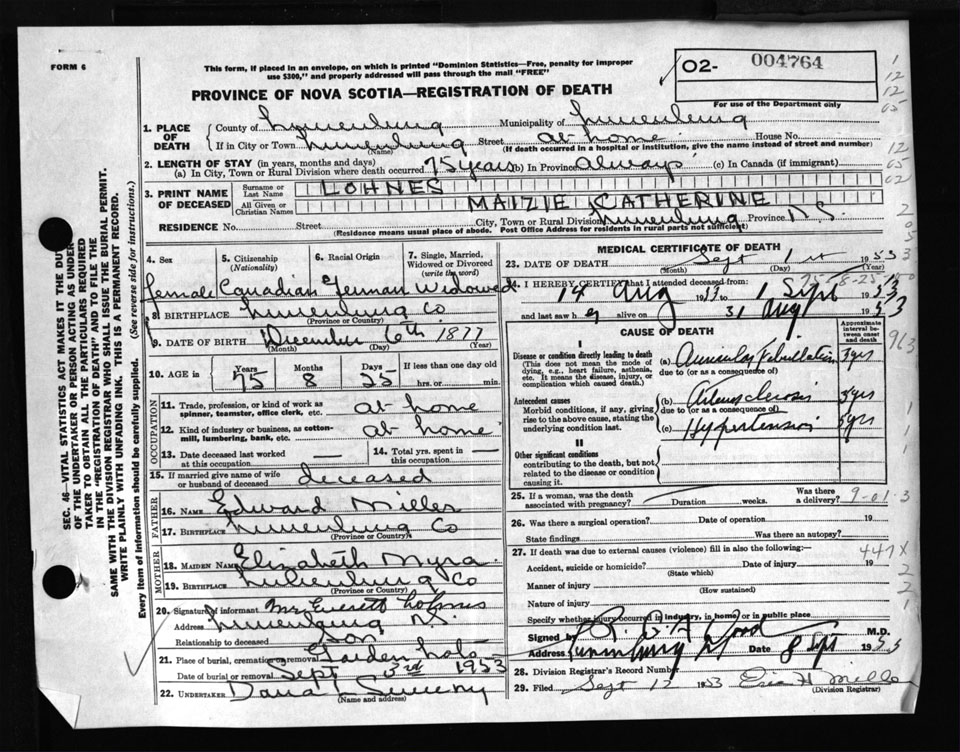 FORM 6
This form, if placed in an envelope, on which is printed "Dominion Statistics—Free, penalty for improper
use $300," and properly addressed will pass through the mail "FREE"
PROVINCE OF NOVA SCOTIA—REGISTRATION OF DEATH
02- 004764
For use of the Department only
1. PLACE OF DEATH
County of Lunenburg Municipality of Lunenburg
If in City or Town Lunenburg Street at home House No.
(Name) (If death occurred in a hospital or institution, give the name instead of street and number)
2. LENGTH OF STAY (in years, months and days)
(a) In City, Town or Rural Division where death occurred 75 years (b) In Province Always (c) In Canada (if immigrant)
3. PRINT NAME OF DECEASED
Surname or Last Name LOHNES
All Given or Christian Names MAIZIE CATHERINE
RESIDENCE No. Street City, Town or Rural Division Lunenburg Province N.S.
(Residence means usual place of abode. Post Office Address for residents in rural parts not sufficient)
4. Sex
5. Citizenship (Nationality)
6. Racial Origin
7. Single, Married, Widowed or Divorced (write the word)
female Canadian German Widowed
8. BIRTHPLACE Lunenburg Co
(Province or Country)
9. DATE OF BIRTH December 6th 1877
(Month) (Day) (Year)
10. AGE in Years Months Days If less than one day old
75 8 25 hrs. or min.
OCCUPATION
11. Trade, profession, or kind of work as spinner, teamster, office clerk, etc. at home
12. Kind of industry or business, as cotton-mill, lumbering, bank, etc. at home
13. Date deceased last worked at this occupation —
14. Total yrs. spent in this occupation —
15. If married give name of wife or husband of deceased deceased
FATHER
16. Name Edward Miller
17. BIRTHPLACE Lunenburg Co
(Province or Country)
MOTHER
18. MAIDEN NAME Elizabeth Myra
19. BIRTHPLACE Lunenburg Co
(Province or Country)
20. Signature of informant Mr Everett Lohnes
Address Lunenburg N.S.
Relationship to deceased Son
21. Place of burial, cremation or removal Garden Lots
Date of burial or removal Sept 3rd 1953
22. UNDERTAKER Dana L Sweeny
(Name and address)
MEDICAL CERTIFICATE OF DEATH
23. DATE OF DEATH Sept 1st 1953
(Month) (Day) (Year)
24. I HEREBY CERTIFY that I attended deceased from
14 Aug 1953 to 1 Sept 1953
and last saw her alive on 31 Aug 1953
CAUSE OF DEATH
Approximate interval between onset and death
I
Disease or condition directly leading to death
(This does not mean the mode of dying, e.g., heart failure, asthenia, etc. It means the disease, injury, or complication which caused death.)
(a) Auricular Fibrillation 3 yrs
due to (or as a consequence of)
Antecedent causes
Morbid conditions, if any, giving rise to the above cause, stating the underlying condition last.
(b) Arteriosclerosis 5 yrs
due to (or as a consequence of)
(c) Hypertension 5 yrs
II
Other significant conditions
contributing to the death, but not related to the disease or condition causing it.
25. If a woman, was the death associated with pregnancy? Duration weeks. Was there a delivery?
26. Was there a surgical operation? Date of operation 19
State findings Was there an autopsy?
27. If death was due to external causes (violence) fill in also the following:—
Accident, suicide or homicide? Date of injury 19
(State which)
Manner of injury
(How sustained)
Nature of injury
Specify whether injury occurred in industry, in home or in public place
Signed by Wood M.D.
Address Lunenburg Date 8 Sept 1953
28. Division Registrar's Record Number
29. Filed Sept 1953
(Division Registrar)
SEC. 46—VITAL STATISTICS ACT MAKES IT THE DUTY
OF THE UNDERTAKER OR PERSON ACTING AS UNDER-
TAKER TO OBTAIN ALL THE PARTICULARS REQUIRED
IN THE "REGISTRATION OF DEATH" AND TO FILE THE
SAME WITH THE DIVISION REGISTRAR WHO SHALL ISSUE THE BURIAL PERMIT.
WRITE PLAINLY WITH UNFADING INK. THIS IS A PERMANENT RECORD.
Every item of information should be carefully supplied. (See reverse side for instructions.)
1
12
12
65
12
65
02
963
9-01-3
447X